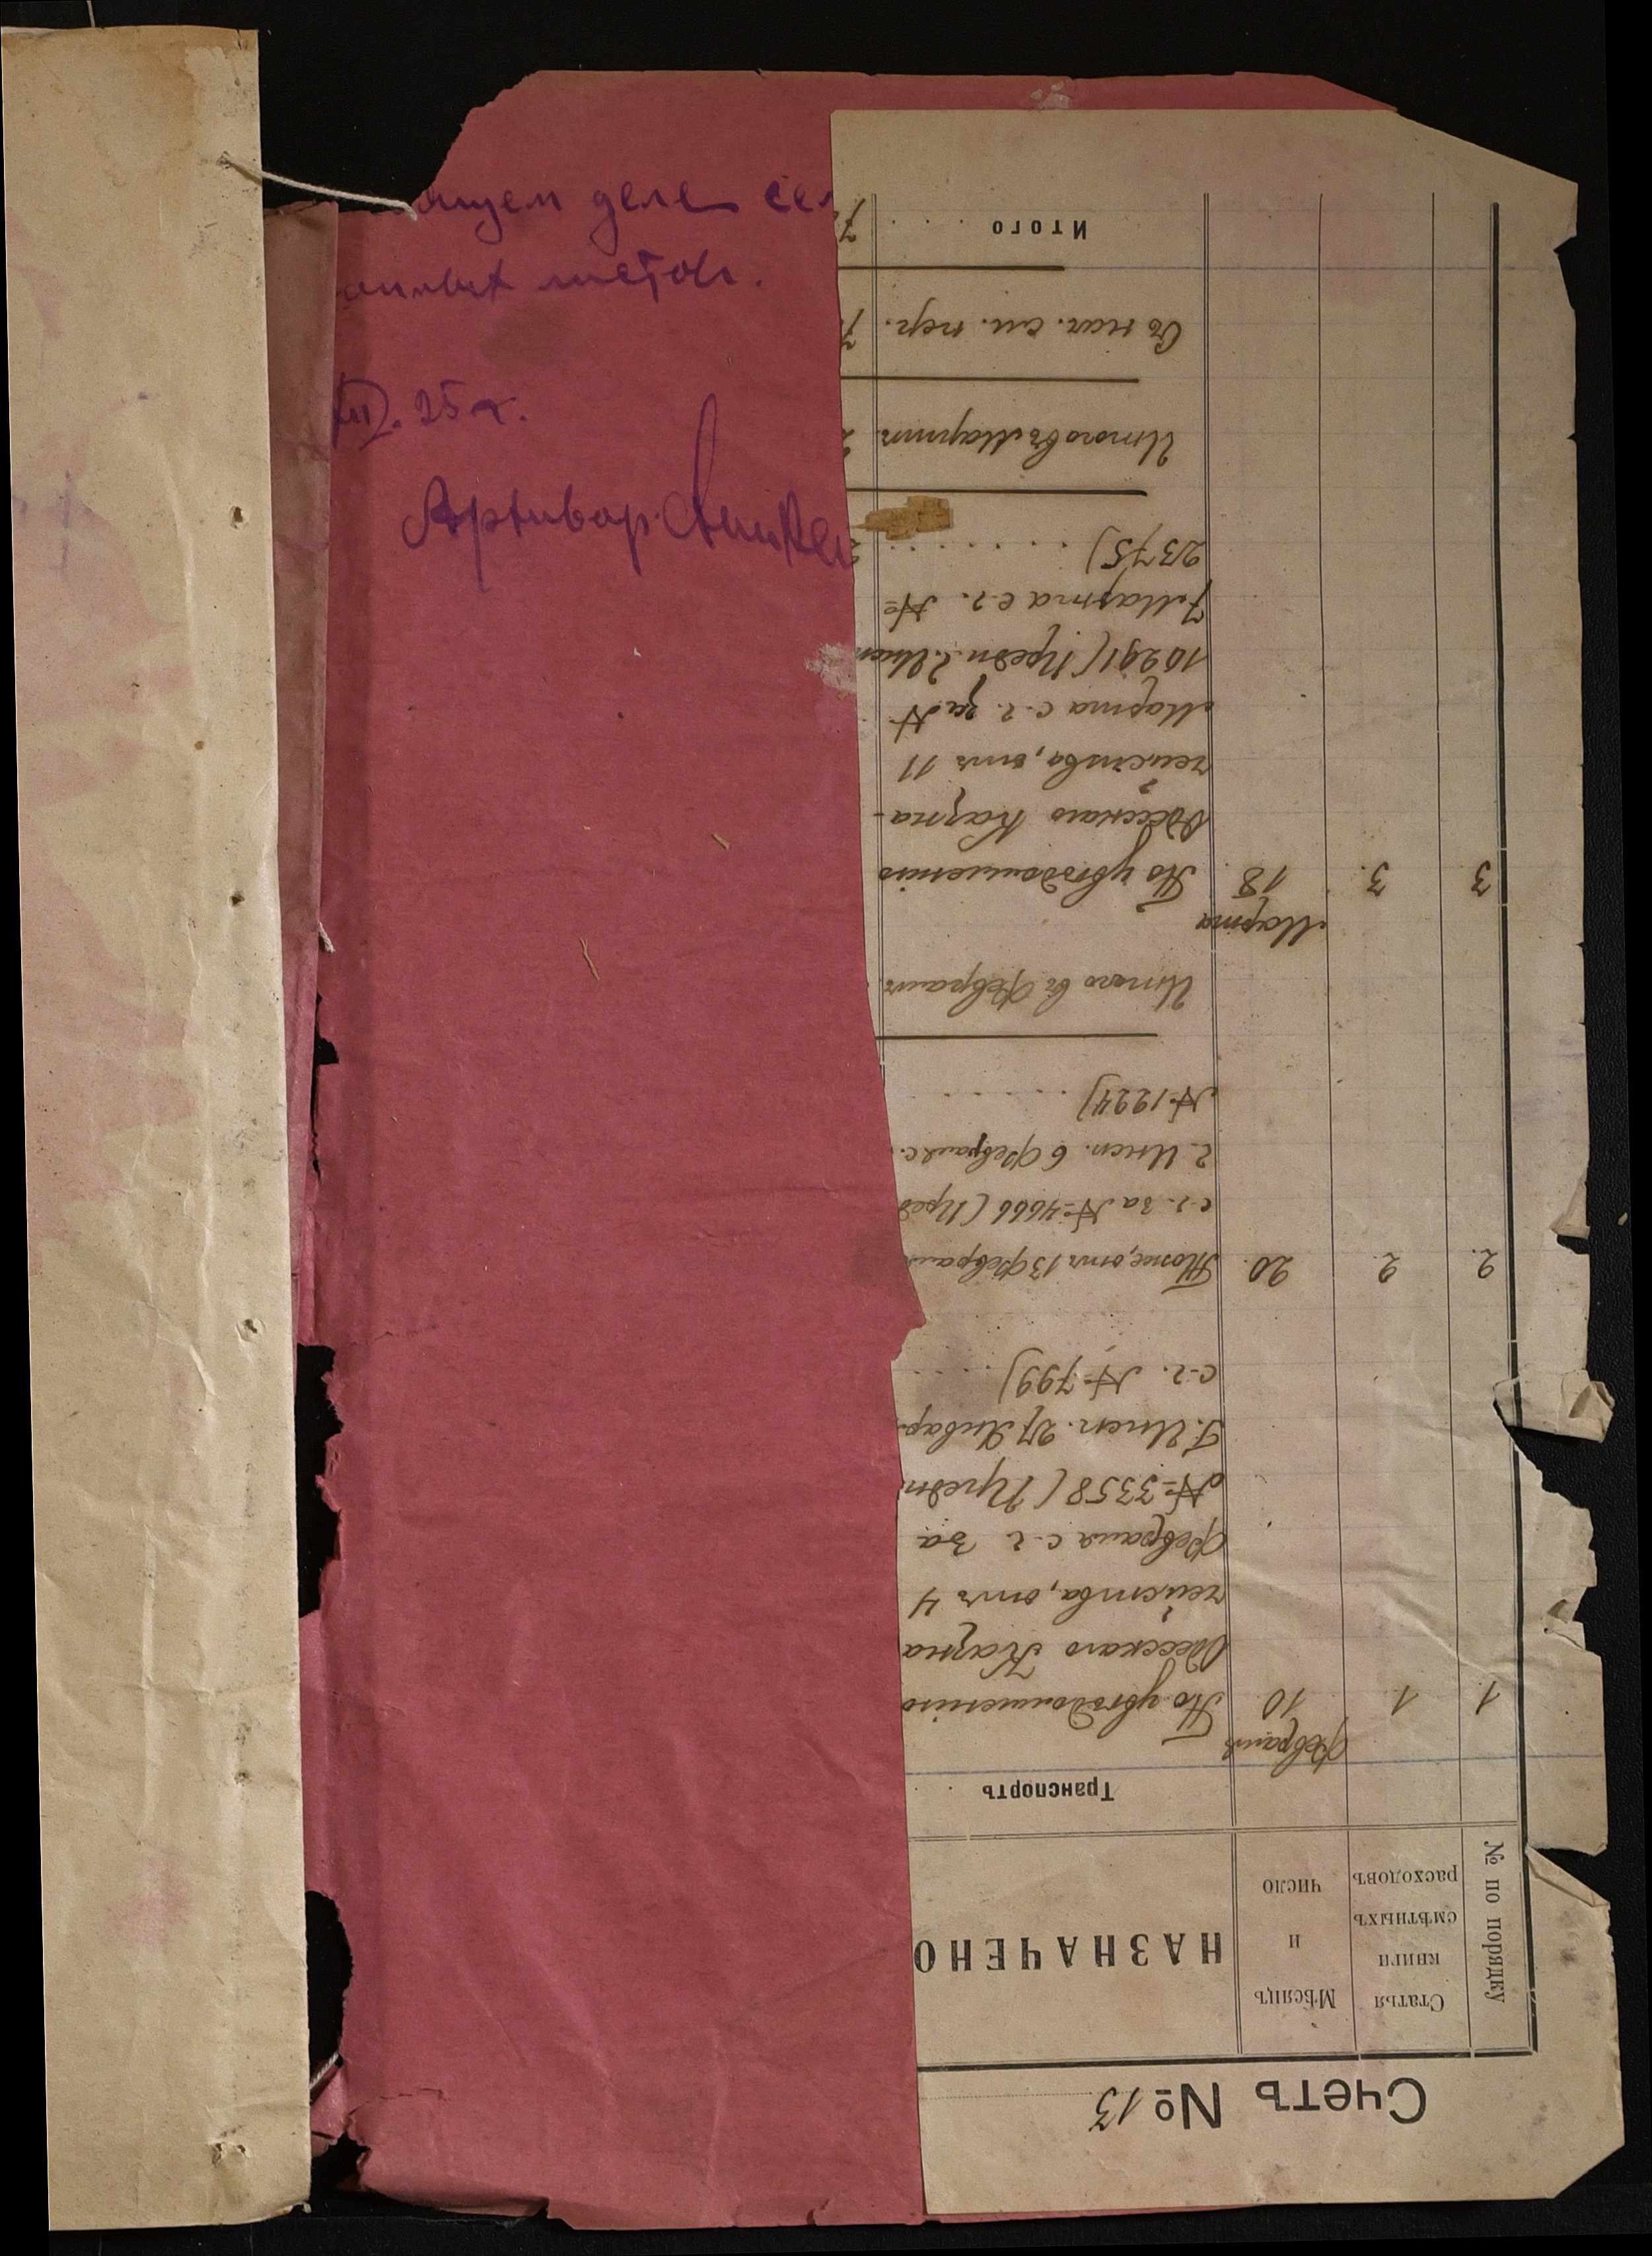 ящем деле
листов.
III. 25 г.
Архивар.
Счетъ № 13
№ по порядку
Статья
книги
смѣтныхъ
расходовъ
Мѣсяцъ
и
число
НАЗНАЧЕНО
Транспортъ
Февраль
1. 1. 10. По увѣдомленію
Одесскаго Казна
чейства, отъ 4
Февраля с.г. за
№ 3358 (Предп
Г. Инсп. 27 Январ
с.г. № 799)
2. 2. 20. Тоже, отъ 13 Феврал
с.г. за № 4666 (Пред
г. Инсп. 6 Февраля с.
№ 1224)
Итого въ Февралѣ
Марта
3 3. 18. По увѣдомленію
Одесскаго Казна-
чейства, отъ 11
Марта с.г. за №
10291 (Предп. г. Инсп
7 Марта с.г. №
2375)
Итого въ Мартѣ 2
Съ нач. см. пер. 7
Итого 7